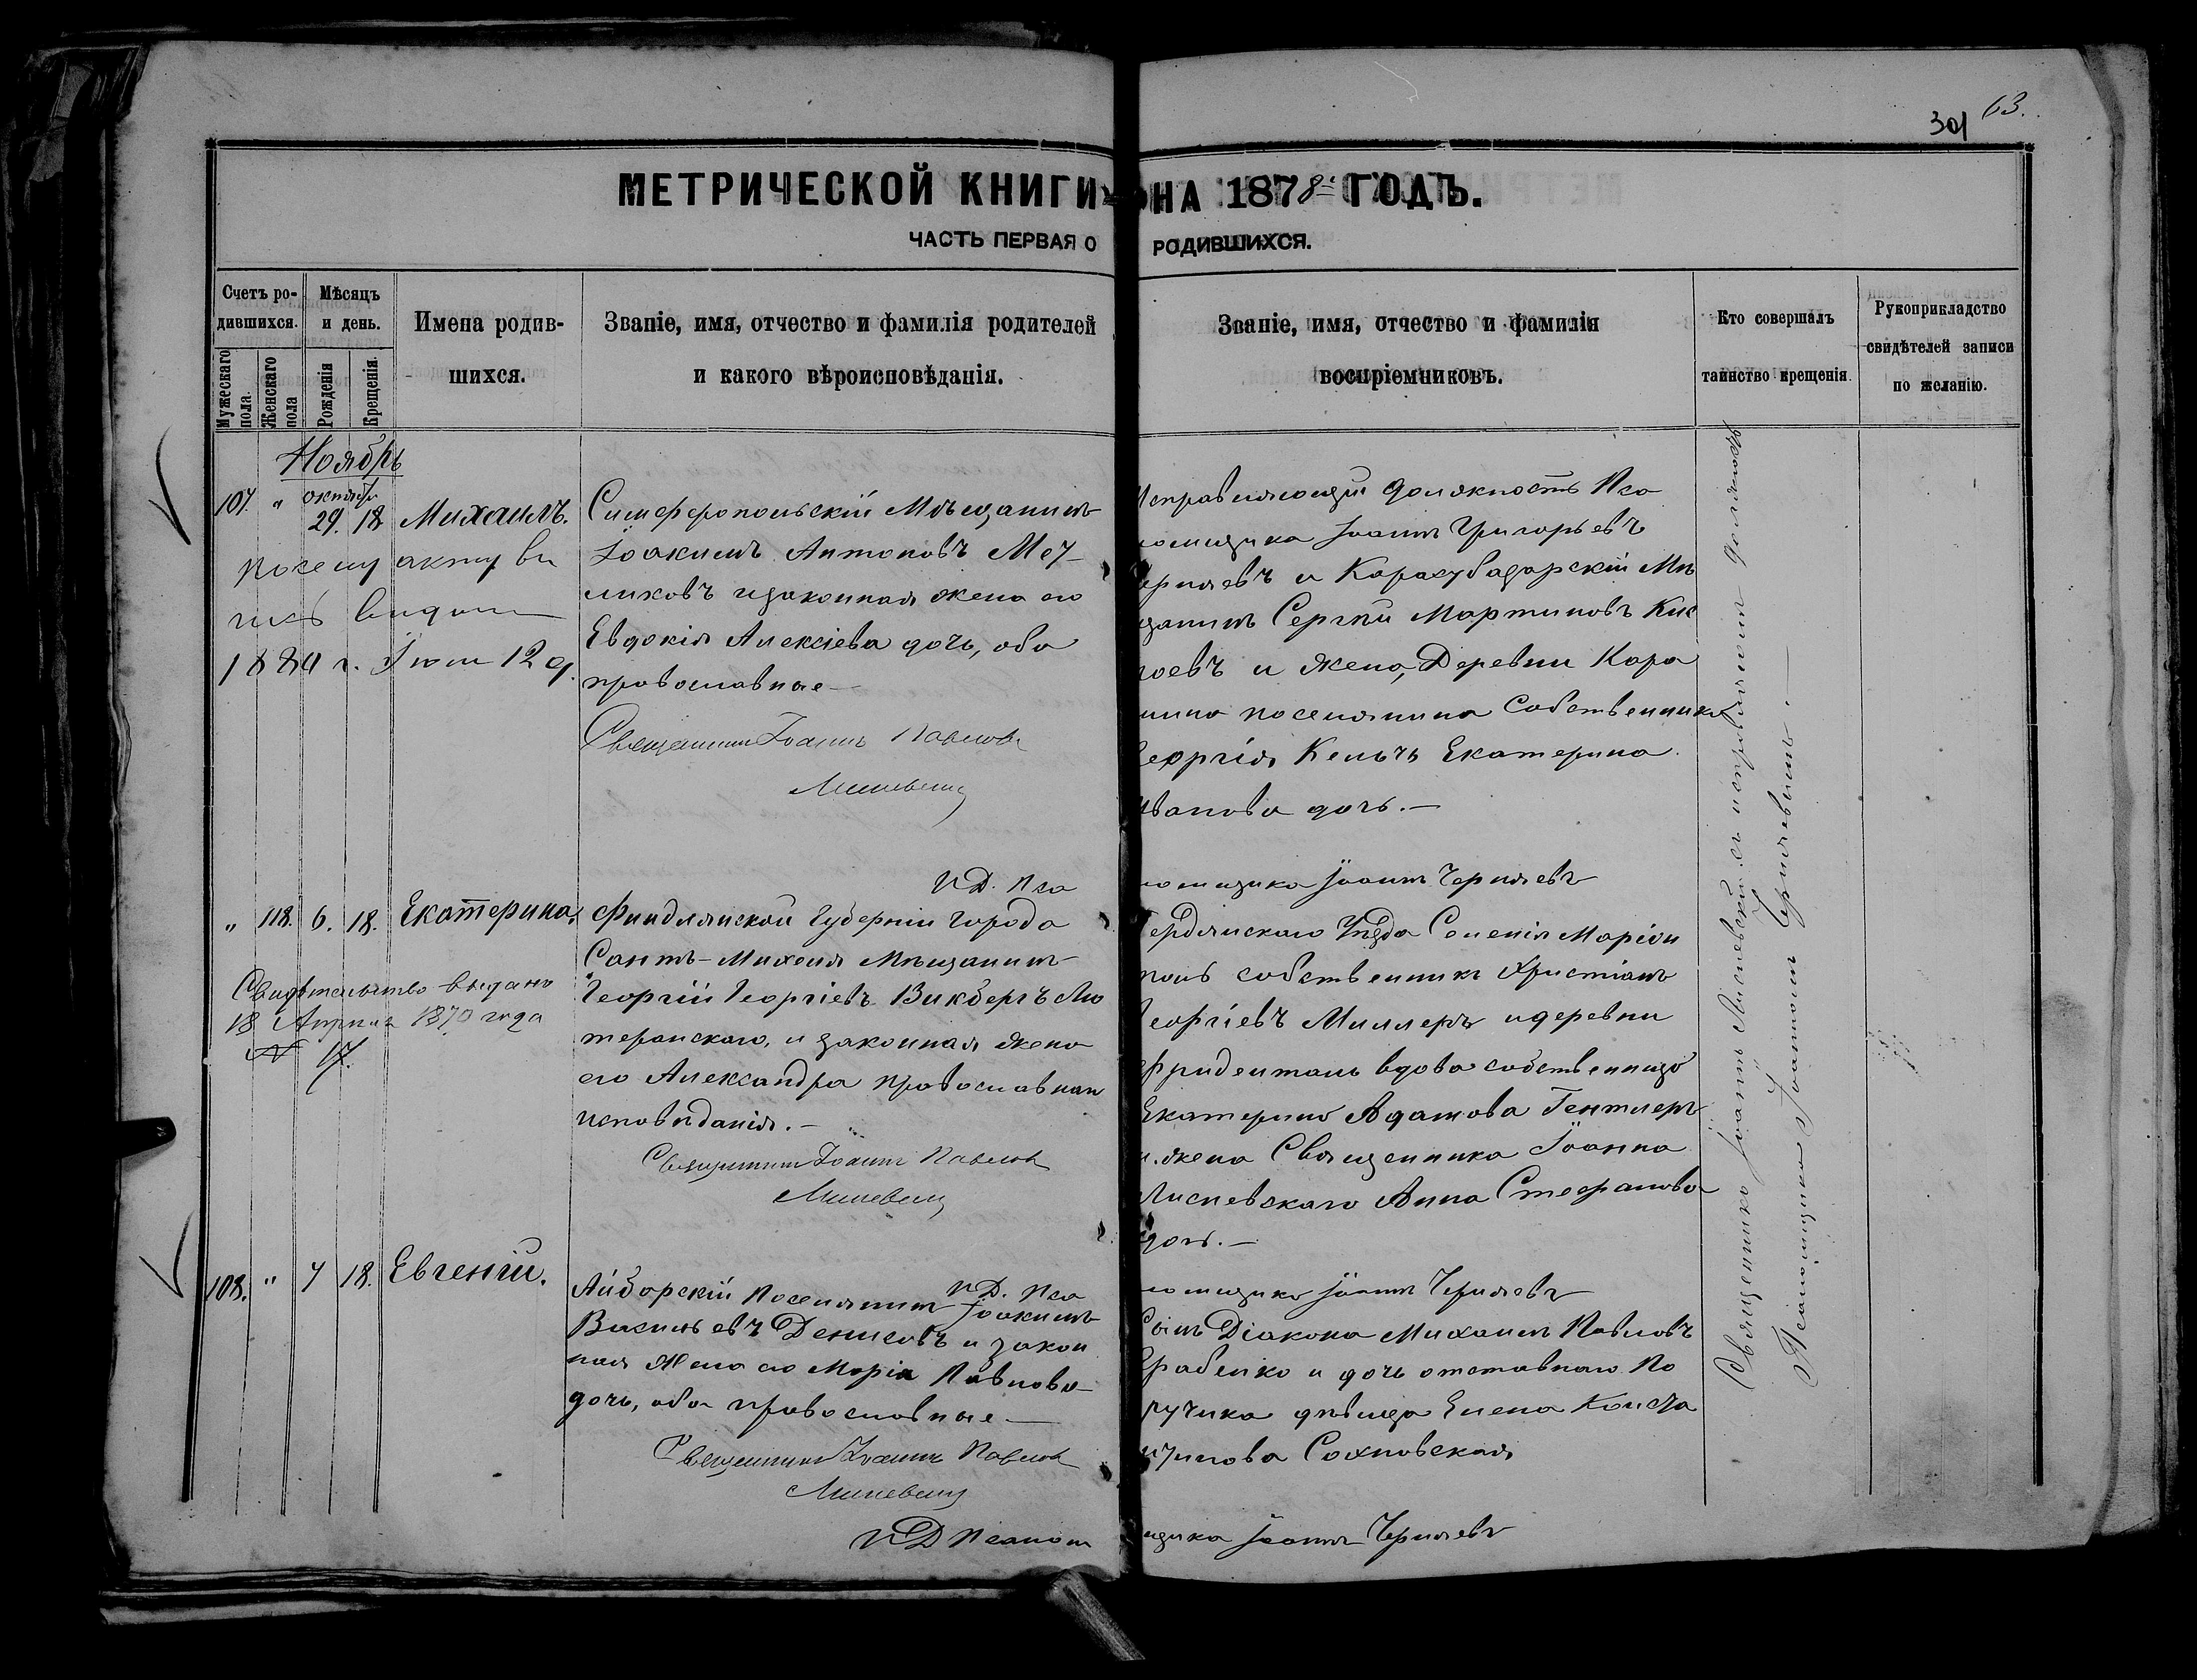 301 63.
МЕТРИЧЕСКОЙ КНИГИ НА 1878й ГОДЪ.
ЧАСТЬ ПЕРВАЯ О РОДИВШИХСЯ.
Счетъ ро-
дившихся.
Мужескаго пола.
Женскаго пола
Мѣсяцъ
и день.
Рожденія
Крещенія.
Имена родив-
шихся.
Званіе, имя, отчество и фамилія родителей
и какого вѣроисповѣданія.
Званіе, имя, отчество и фамилія
воспріемниковъ.
Кто совершалъ
таинство крещенія.
Рукоприкладство
свидѣтелей записи
по желанію.
Ноябрь
107. " октябр 29. 18 Михаилъ.
Симферопольскій Мѣщанинъ
Іоакимъ Антоновъ
и законная жена его
Евдокія Алексіева дочь, оба
православные—
Священникъ Іоаннъ Павловъ
по сему акту
1884 г.
Исправляющій должность Пса
ломщика Іоаннъ Григорьевъ
Черняевъ и Карасубазарскій Мѣ
щанинъ Сергѣй Мартиновъ
и жена, Деревни Кара
поселянина Собственника
Георгія Екатерина
Иванова дочь.—
И.Д. Пса
ломщика Іоаннъ Черняевъ
" 118. 6. 18. Екатерина.
Финдлянской Губерніи города
Сантъ-Михеля Мѣщанинъ
Георгій Георгіевъ Викбергъ Лю
теранскаго, и законная жена
его Александра православнаго
исповѣданія.—
Священникъ Іоаннъ Павловъ
Свидѣтельство выдано
18 Апрѣля года
№ 17.
Бердянскаго Уѣзда Селенія Маріен
собственникъ Христіанъ
Георгіевъ Миллеръ и деревни
Фриденталь вдова собственница
Екатерина Адамова Гентлеръ
и жена Священника Іоанна
Лисневскаго Анна Стефанова
дочь.—
И.Д. Пса
ломщика Іоаннъ Черняевъ
108. " 7 18. Евгеній.
Айбарскій Поселянинъ Іоакимъ
Васильевъ Денисовъ и закон
ная жена его Марія Павлова
дочь, оба православные—
Священникъ Іоаннъ Павловъ
Сынъ Діакона Михаилъ Павловъ
и дочь отставнаго По
ручика дѣвица Елена Конста
нтинова Сохновская
ИД Псалом
щика Іоаннъ Черняевъ
Священникъ Іоаннъ Лисневскій съ исправляющимъ должность
Псаломщика Іоанномъ Черняевымъ.—